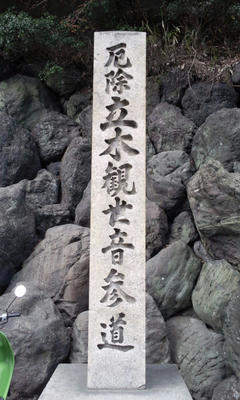 厄除立木観世音参道